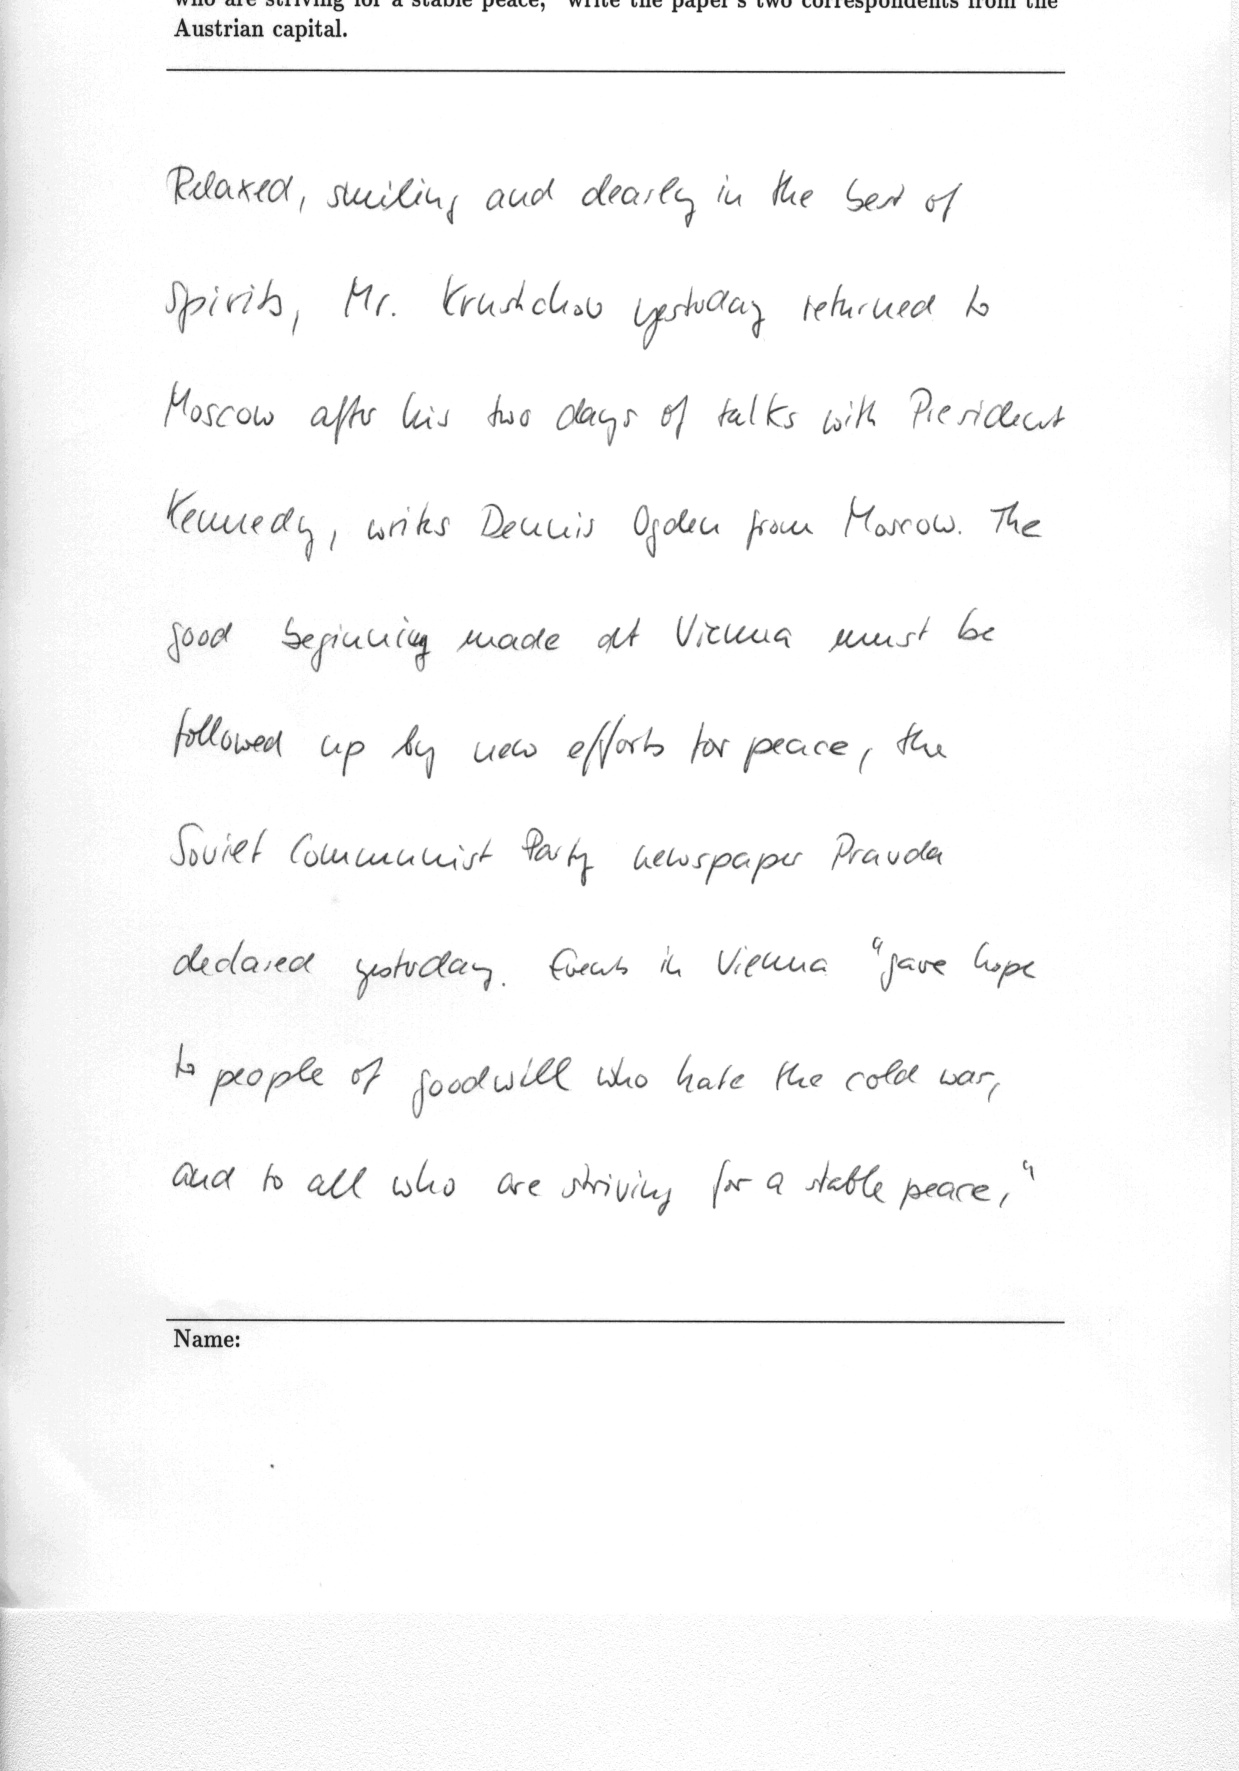 who are striving for a stable peace," write the paper's two correspondents from the
Austrian capital.
Relaxed, smiling and clearly in the best of
spirits, Mr. Krushchov yesterday returned to
Moscow after his two days of talks with President
Kennedy, writes Dennis Ogden from Moscow. The
good beginning made at Vienna must be
followed up by new efforts for peace, the
Soviet Communist Party newspaper Pravda
declared yesterday. Events in Vienna "gave hope
to people of goodwill who hate the cold war,
and to all who are striving for a stable peace,"
Name: